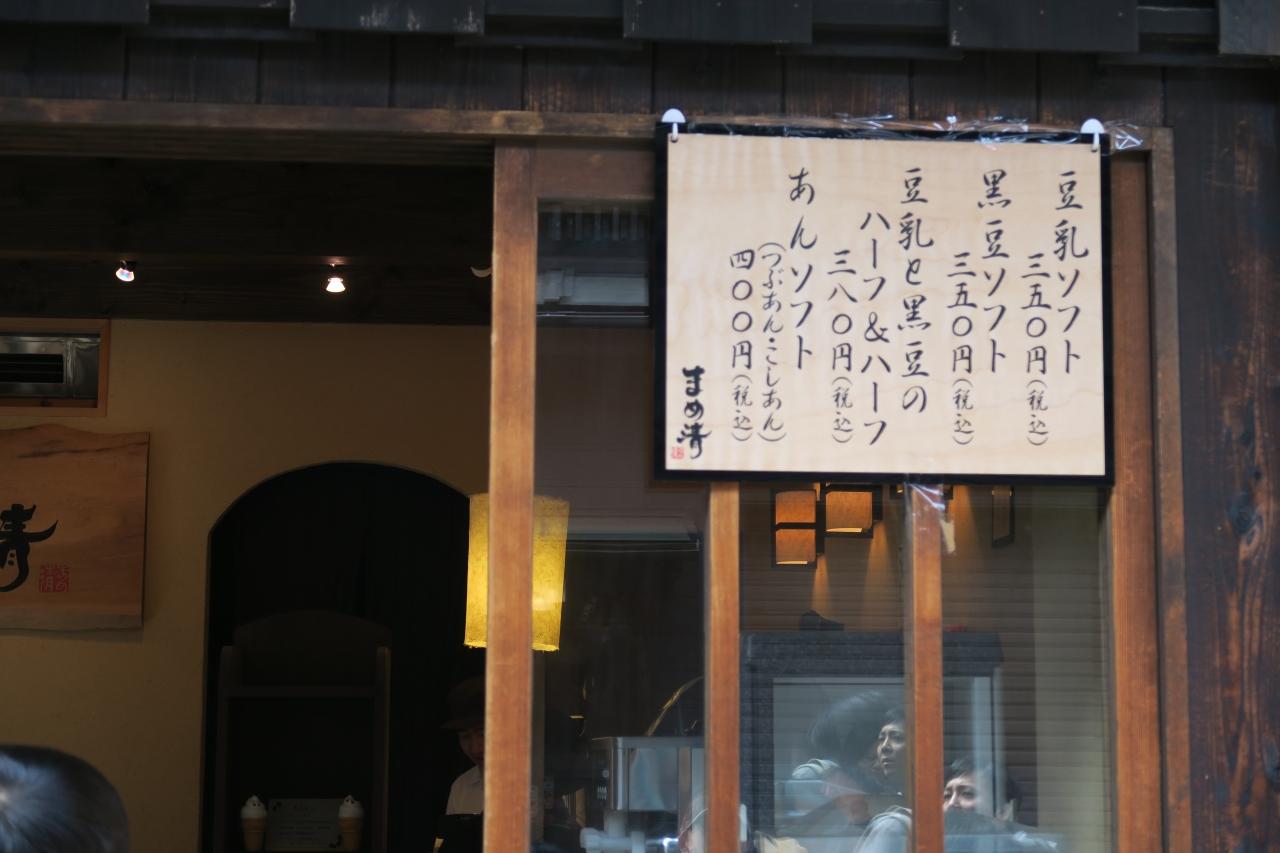 豆乳ソフト
三五〇円(税込)
黒豆ソフト
三五〇円(税込)
豆乳と黒豆の
ハーフ&ハーフ
三八〇円(税込)
あんソフト
(つぶあん・こしあん)
四〇〇円(税込)
まめ清
清